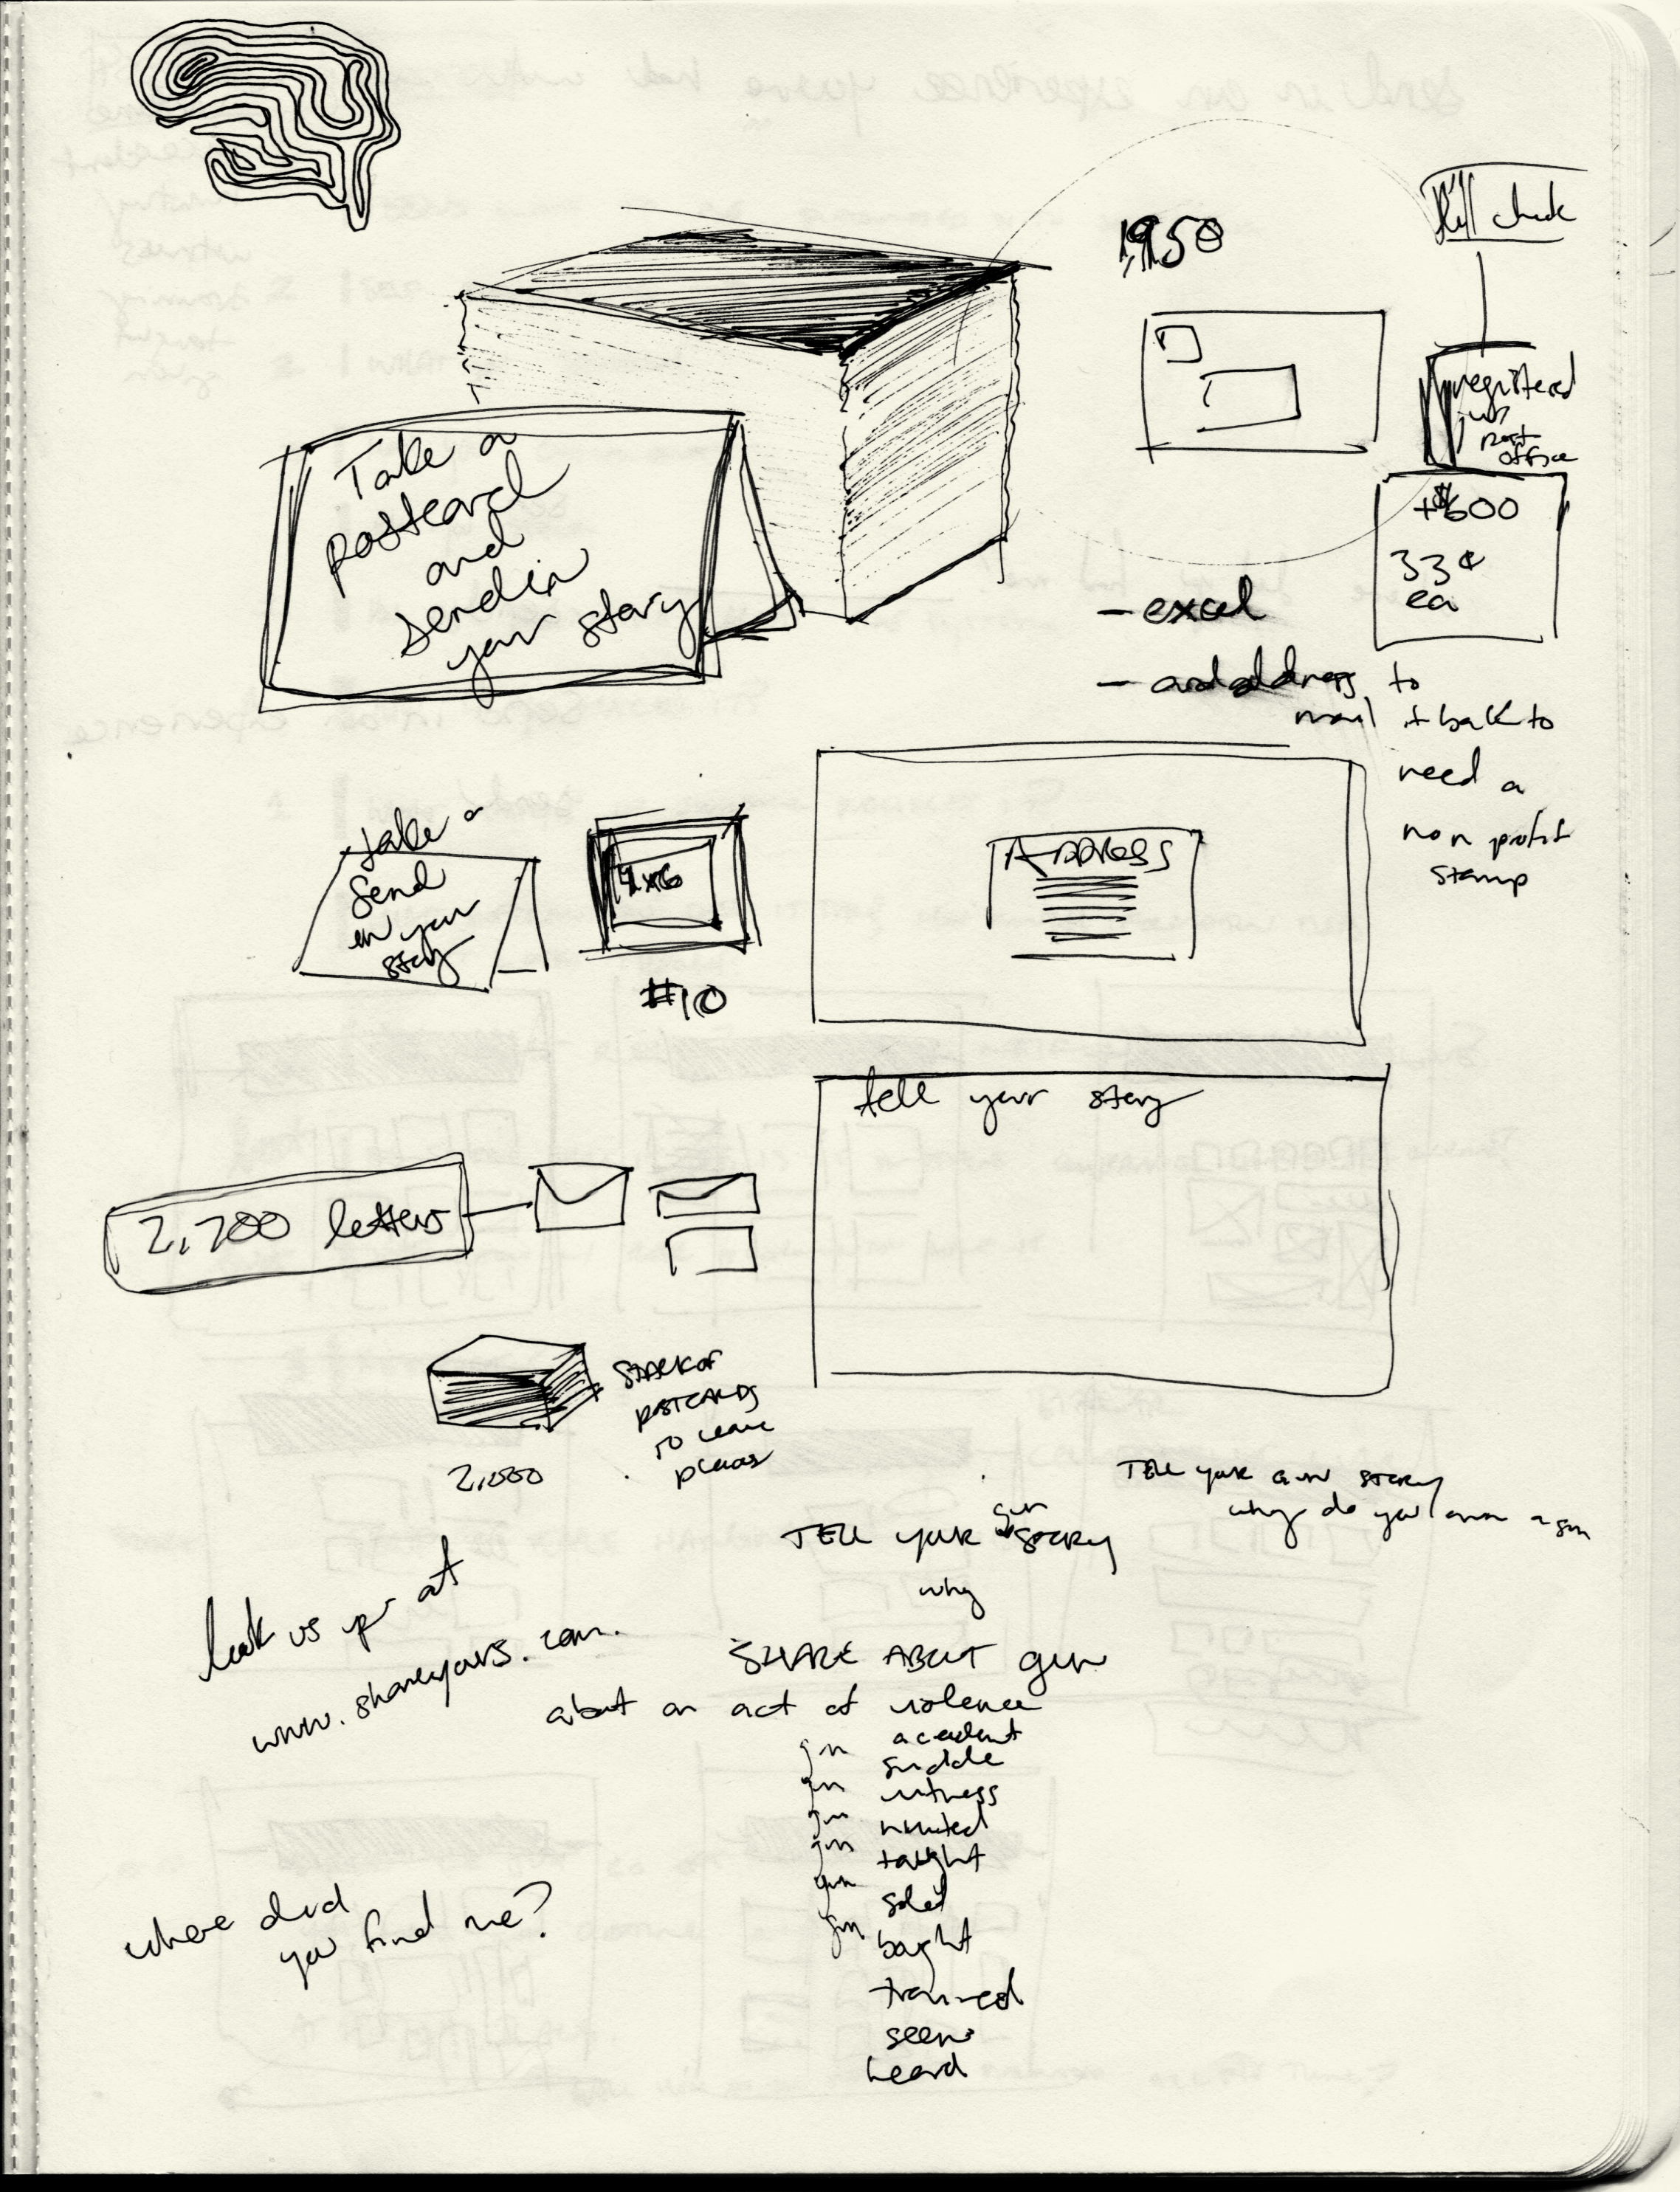 1,950
check
registered
post
office
+$600
33¢
ea
Take a
postcard
and
send in
your story
- excel
- address to
mail it back to
need a
non profit
stamp
take a
send
in your
story
4x6
#10
ADDRESS
tell your story
2,200 letters
STACK OF
POSTCARDS
TO leave
places
2,000
TELL your gun STORY
why do you own a gun
TELL your gun STORY
why
look us up at
www.shareyours.com.
SHARE ABOUT gun
about an act of violence
gun accident
gun suicide
gun witness
gun
gun taught
gun sold
bought
trained
seen
heard
where did
you find me?